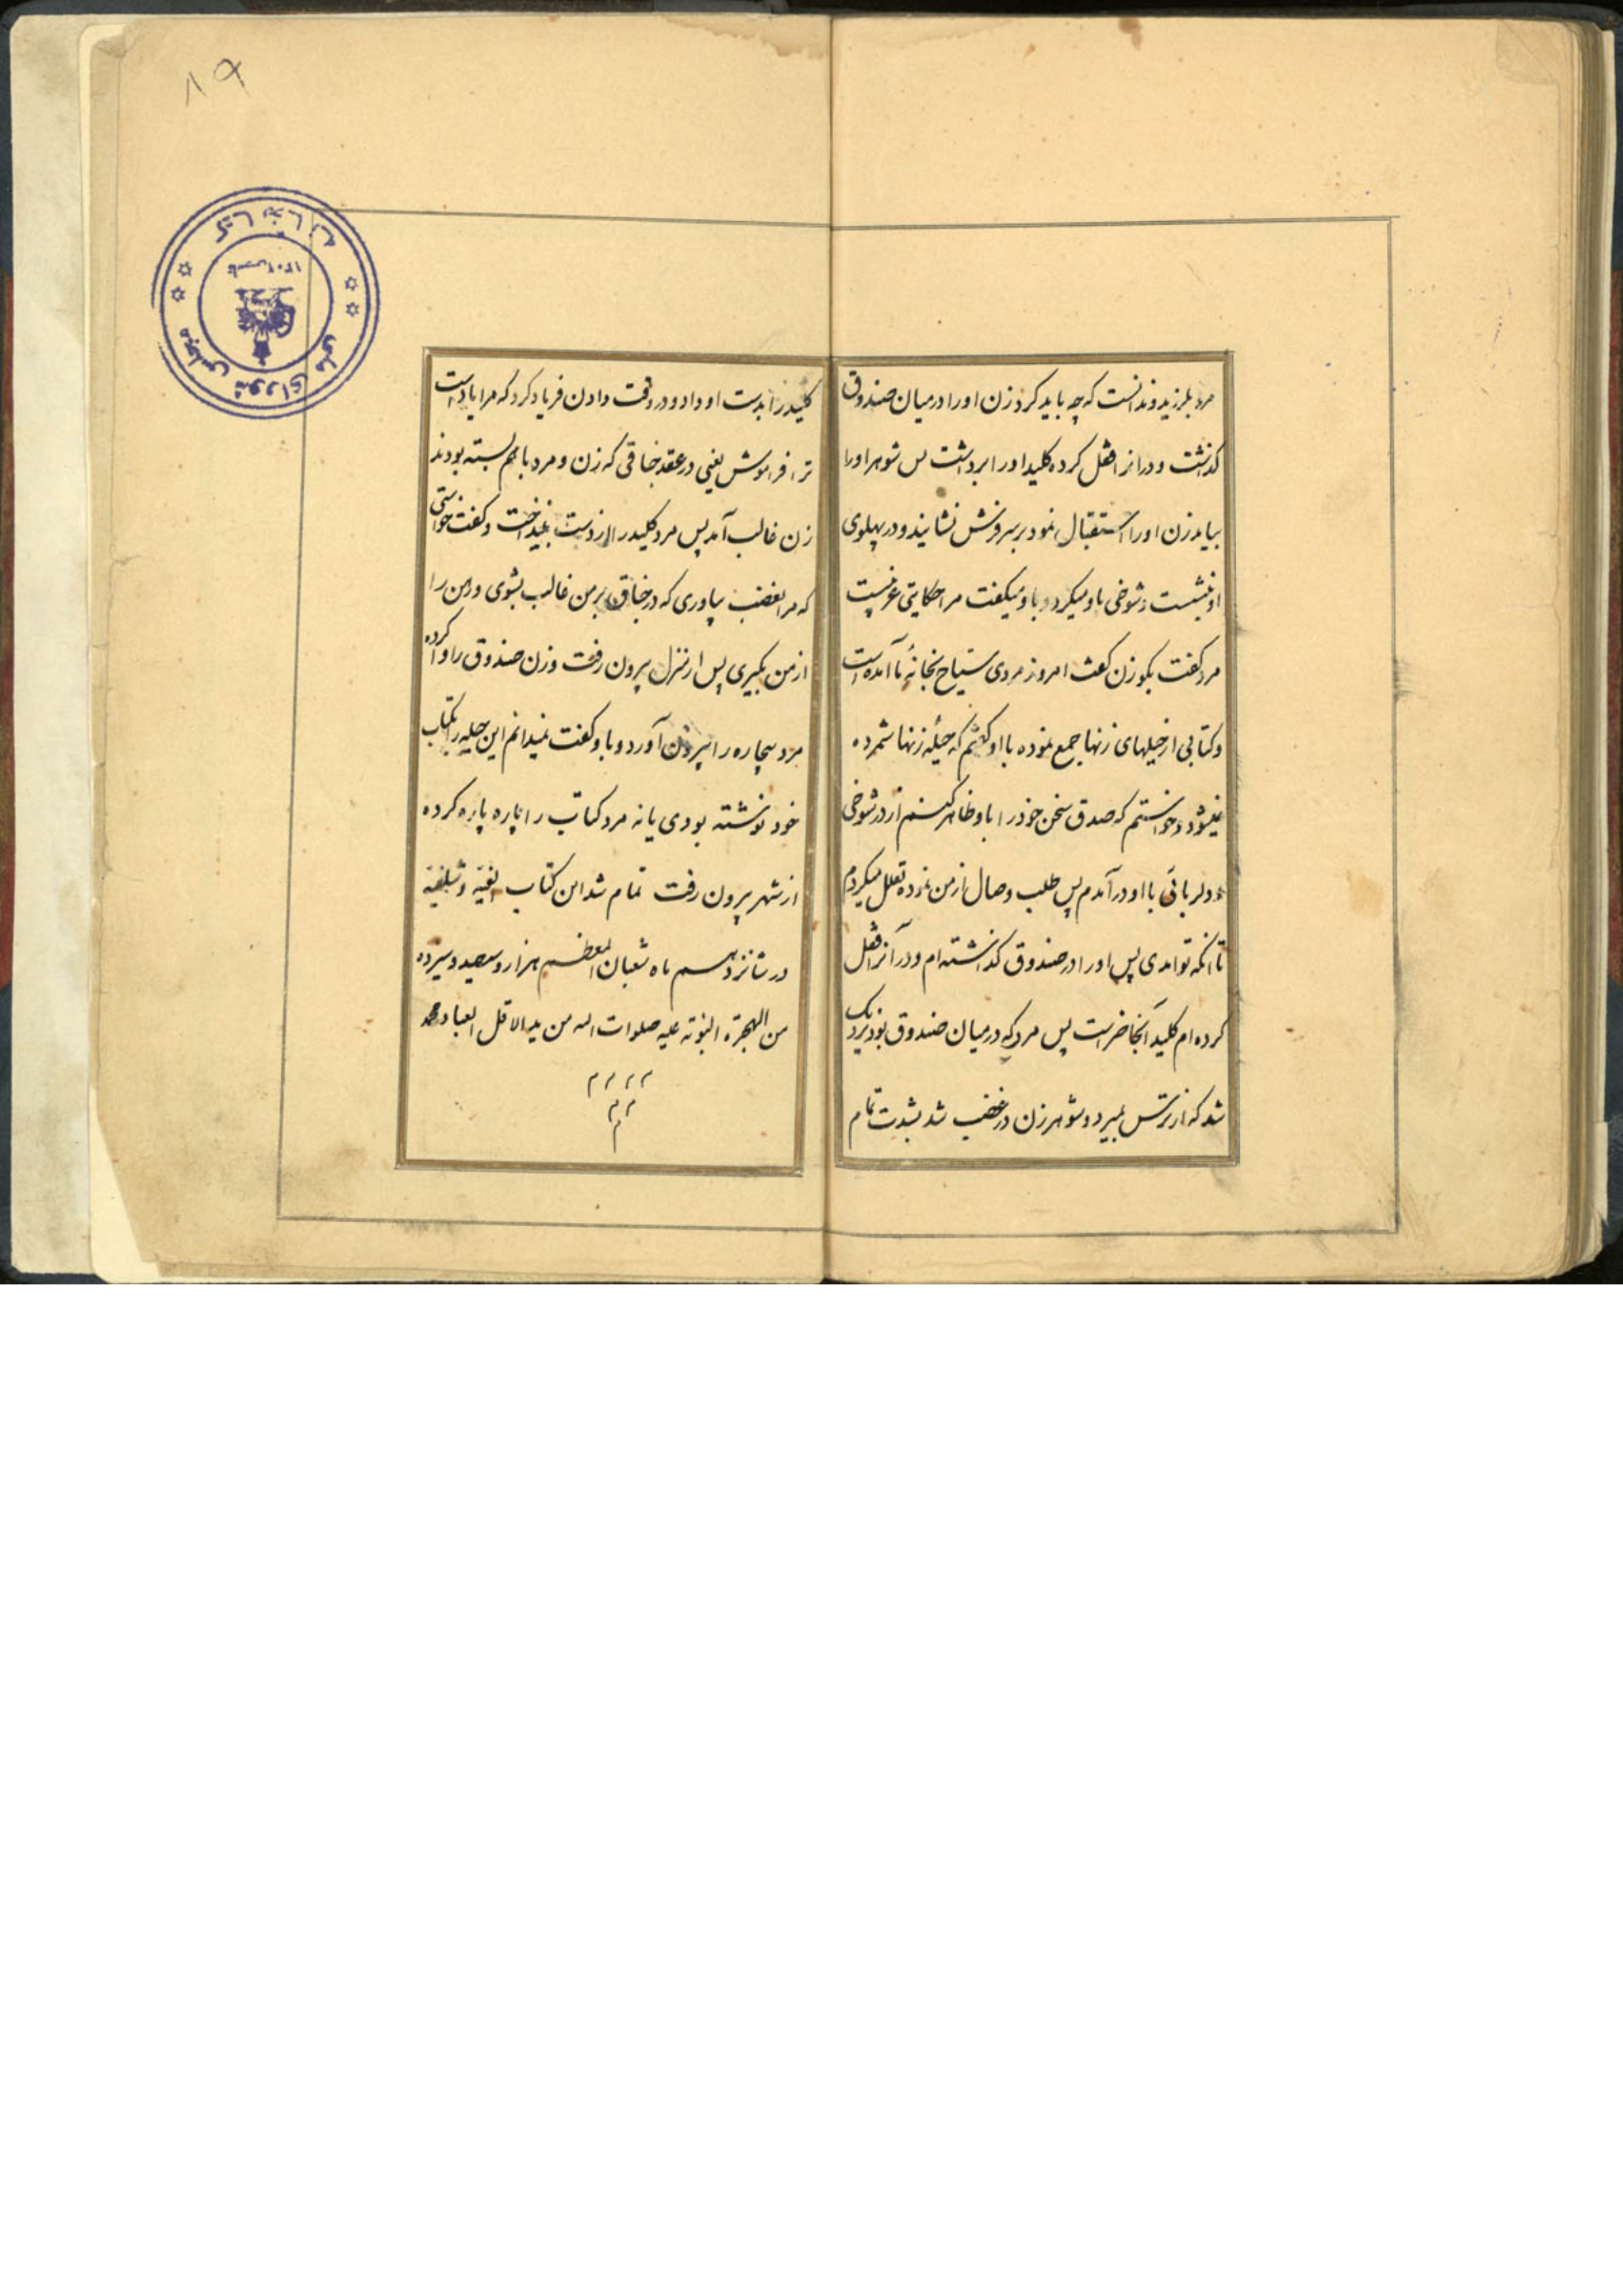 مرد بلرزید و ندانست که چه باید کرد زن او را در میان صندوق
کذاشت و در انرا قفل کرده کلید او را برداشت پس شوهر او را
بیامد زن او را استقبال نمود بر سر فرش نشانید و در پهلوی
او بنشست و شوخی باو میکرد و باو میکفت مرا حکایتی غریبست
مرد کفت بکو زن کفت امروز مردی سیاح بخانهٔ ما آمده است
و کتابی از حیلهای زنها جمع نموده با او کفتم که حیلهٔ زنها شمرده
نمیشود و خواستم که صدق سخن خود را باو ظاهر کنم از در شوخی
و دلربائی با او در آمدم پس طلب وصال از من نموده تعلل میکردم
تا انکه تو امدی پس او را در صندوق کذاشته ام و در آنرا قفل
کرده ام کلید آنجا حاضر است پس مرد که در میان صندوق بود نزدیک
شد که از ترس بمیرد و شوهر زن در غضب شد بشدت تمام
کلید را بدست او داد و در وقت دادن فریاد کرد که مرا یاد است
ترا فراموش یعنی در عقد جناقی که زن و مرد با هم بسته بودند
زن غالب آمد پس مرد کلید را از دست بینداخت و کفت خواستی
که مرا بغضب بیاوری که در جناق بر من غالب بشوی و رهن را
از من بکیری پس از منزل بیرون رفت و زن صندوق را وا کرده
مرد بیچاره را بیرون آورد و باو کفت نمیدانم این حیله را بکتاب
خود نوشته بودی یا نه مرد کتاب را پاره پاره کرده
از شهر بیرون رفت تمام شد این کتاب الفیه و شلفیه
در شانزدهم ماه شعبان المعظم هزار و سیصد و سیزده
من الهجرة النبوته علیه صلوات اله من ید الاقل العباد محمد
م م م م
م م
م
۱۹
کتابخانه
مجلس شورای ملی